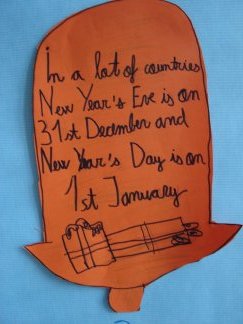 In a lot of countries
New Year's Eve is on
31st December and
New Year's Day is on
1st January